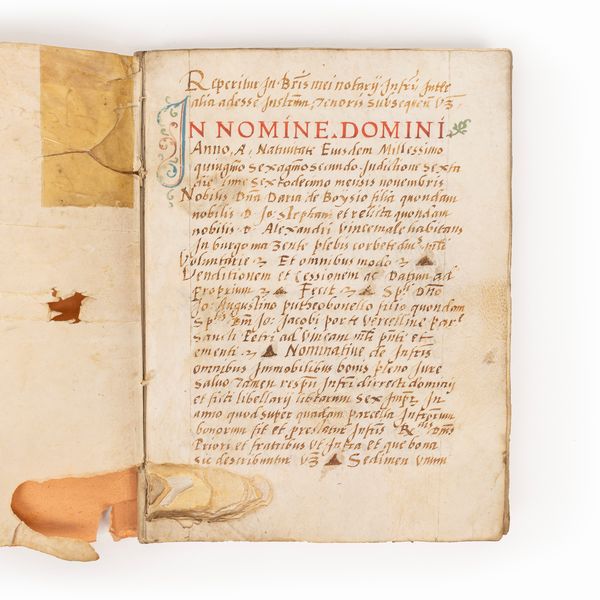 Reperitur In Bris mei notarij Infri Inter
alia adesse Instrm Tenoris subsequen vz
IN NOMINE DOMINI
Anno A Nativitate Eiusdem Millessimo
quingmo sexagmo secundo Indictione sexta
die sextodecimo mensis novembris
Nobilis Dna Daria de Boysio filia quondam
nobilis D Io stephani et relicta quondam
nobilis D Alexandri Vincemale habitans
In burgo plebis
Voluntarie Et omnibus modo
Venditionem et Cessionem ac Datum ad
proprium Fecit Dno
Io: Augustino puteobonello filio quondam
Dm Io: Jacobi porte Vercelline par
Sancti Petri ad Vineam et
ementi Nominative de Infris
omnibus Immobilibus bonis pleno Iure
Salvo Tamen Infri dirrecti dominij
et ficti libellarij librarum sex Impr In
anno quod super quadam parcella Infrrum
bonorum fit et prestatur Infris Dnis
Priori et fratribus Ut Infra et que bona
sic describuntur vz Sedimen unum